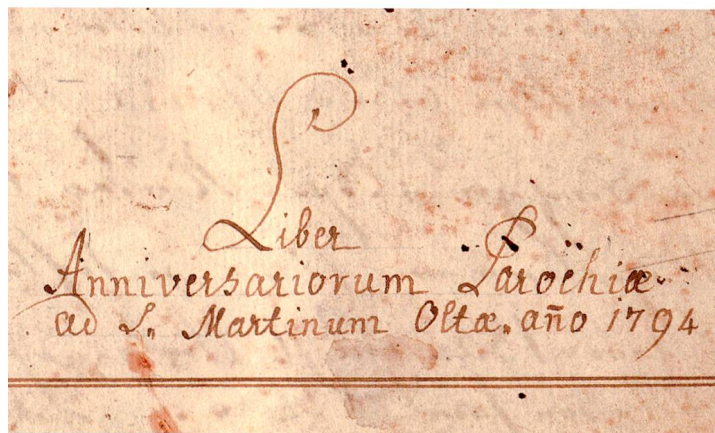 Liber
Anniversariorum Paröchiæ
ad S. Martinum Oltæ. año 1794